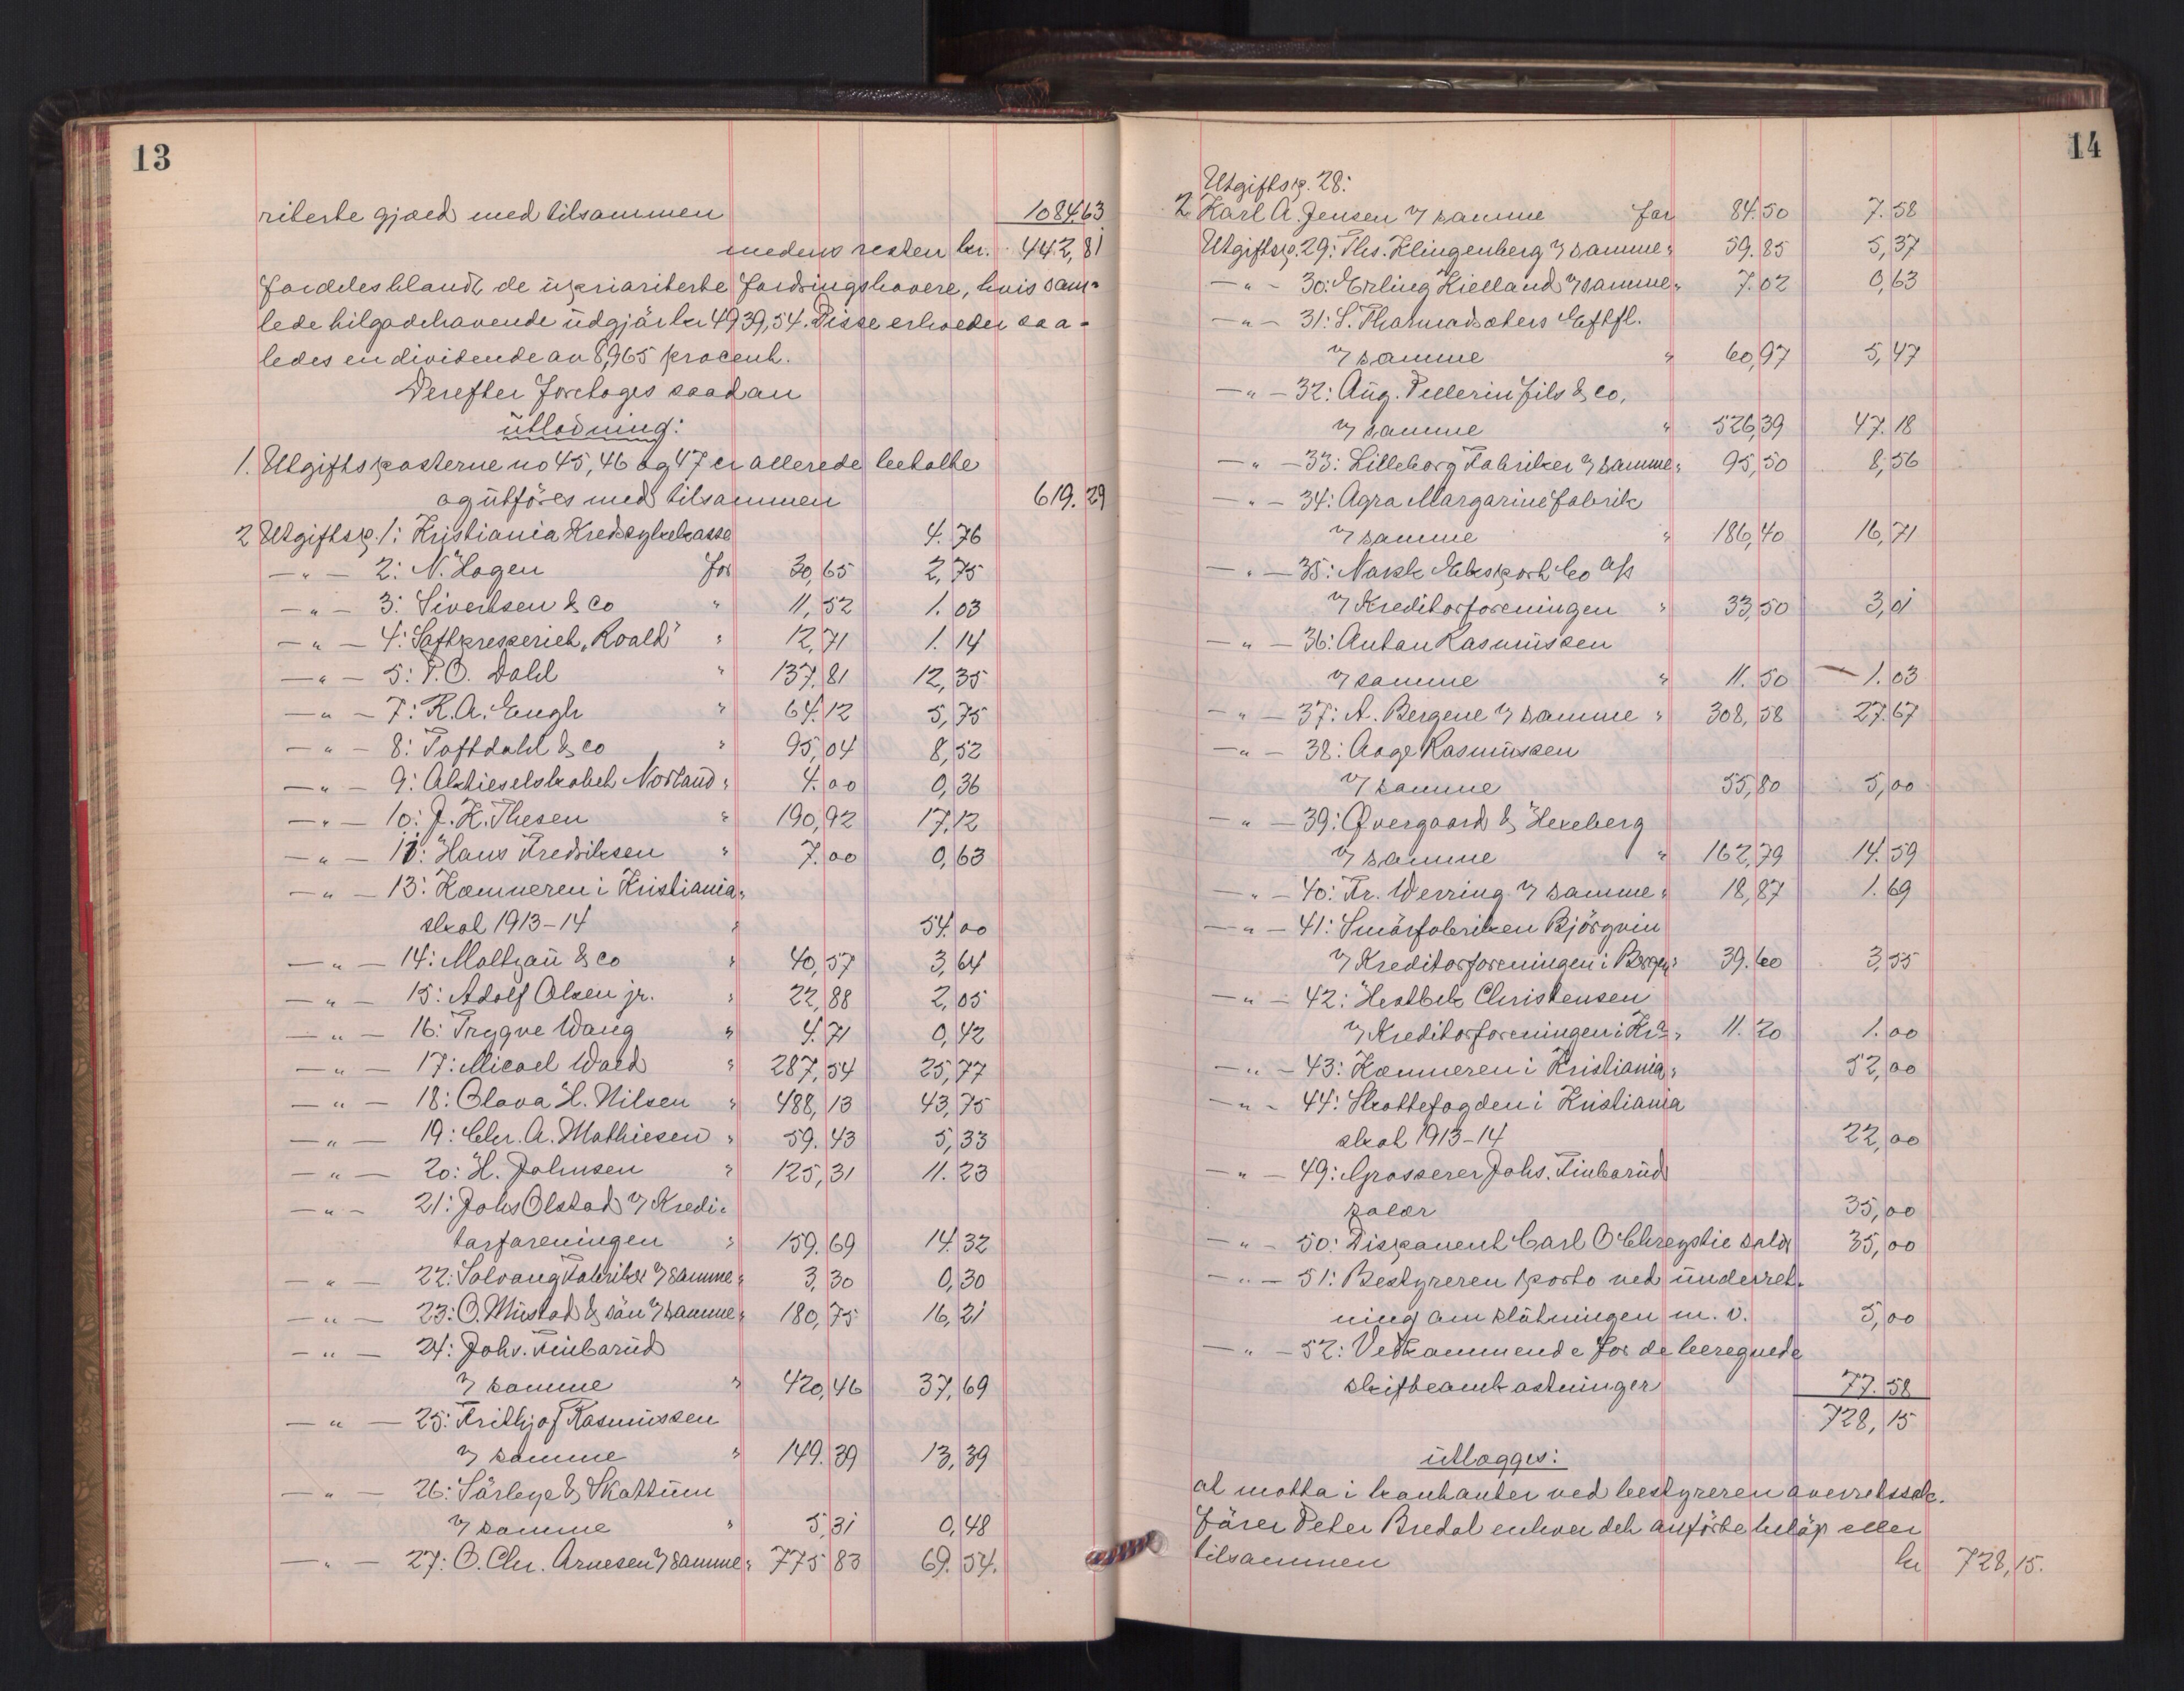 13
riterte gjæld med tilsammen 1084.63
medens resten kr. 442,81
fordeles blandt de upriariterte fordringshavere, hvis sam-
lede tilgodehavende udgjör kr 4939,54. Disse erholder saa-
ledes en dividende av 8,965 procent.
Derefter foretages saadan
utlodning:
1. Utgiftsposterne no 45, 46 og 47 er allerede betalte
og utföres med tilsammen 619.29
2 Utgiftsp. 1: Kristiania Kredssykekasse 4.76
— " — 2: N. Hagen for 30,65 2,75
— " — 3: Sivertsen & Co " 11,52 1.03
— " — 4: Saftpresseriet „Roald" " 12,71 1.14
— " — 5: P.O. Dahl " 137.81 12,35
— " — 7: K.A. Engh " 64.12 5,75
— " — 8: Toftdahl & Co " 95,04 8,52
— " — 9: Aktieselskabet Norland " 4.00 0,36
— " — 10: J.K. Thesen " 190,92 17,12
— " — 11: Hans Fredriksen " 7.00 0,63
— " — 13: Kæmneren i Kristiania,
skat 1913-14 " 54.00
— " — 14: Maltzau & Co " 40,57 3,64
— " — 15: Adolf Olsen jr. " 22,88 2,05
— " — 16: Trygve Wang " 4.71 0,42
— " — 17: Micael Wald " 287,54 25,77
— " — 18: Olava H. Nilsen " 488,13 43,75
— " — 19: Chr. A. Mathiesen " 59.43 5,33
— " — 20: H. Johnsen " 125,31 11.23
— " — 21: Johs Olstad v/ Kredi-
torforeningen " 159.69 14.32
— " — 22: Solvang Fabriker v/ samme " 3,30 0,30
— " — 23: O. Mustad & sön v/ samme " 180,75 16,21
— " — 24: Johs. Finborud
v/ samme " 420,46 37,69
— " — 25: Frithjof Rasmussen
v/ samme " 149.39 13,39
— " — 26: Sörbye & Skattum
v/ samme " 5,31 0,48
— " — 27: O. Chr. Arnesen v/ samme " 775 83 69.54.
14
Utgiftsp. 28:
2 Karl A. Jensen v/ samme for 84.50 7.58
Utgiftsp. 29: Ths. Klingenberg v/ samme " 59.85 5,37
— " — 30: Erling Kielland v/ samme " 7.02 0,63
— " — 31: S. Thormodsæters Eftfl.
v/ samme " 60,97 5,47
— " — 32: Aug. Pellerin fils & Co,
v/ samme " 526,39 47.18
— " — 33: Lilleborg Fabriker v/ samme " 95,50 8,56
— " — 34: Agra Margarinefabrik
v/ samme " 186,40 16,71
— " — 35: Norsk Eksport Co A/s
v/ Kreditorforeningen " 33,50 3,01
— " — 36: Anton Rasmussen
v/ samme " 11.50 1.03
— " — 37: A. Bergene v/ samme " 308,58 27.67
— " — 38: Aage Rasmussen
v/ samme 55,80 5,00
— " — 39: Qvergaard & Hexeberg
v/ samme " 162,79 14.59
— " — 40: Fr. Werring v/ samme " 18,87 1.69
— " — 41: Smörfabriken Björgvin
v/ Kreditorforeningen i Bergen " 39.60 3,55
— " — 42: Christensen
v/ Kreditorforeningen i Kra " 11.20 1.00
— " — 43: Kæmneren i Kristiania " 52,00
— " — 44: Skattefogden i Kristiania
skat 1913-14 22,00
— " — 49: Grosserer Johs. Finborud
salær 35,00
— " — 50: Disponent Carl O Chrystie salær 35,00
— " — 51: Bestyreren porto ved underret-
ning om slutningen m. v. 5,00
— " — 52: Vedkommende for de beregnede
skifteomkostninger 77.58
728,15
utlægges:
at motta i kontanter ved bestyreren overretssak-
förer Peter Bredal enhver det anförte belöp eller
tilsammen kr 728,15.